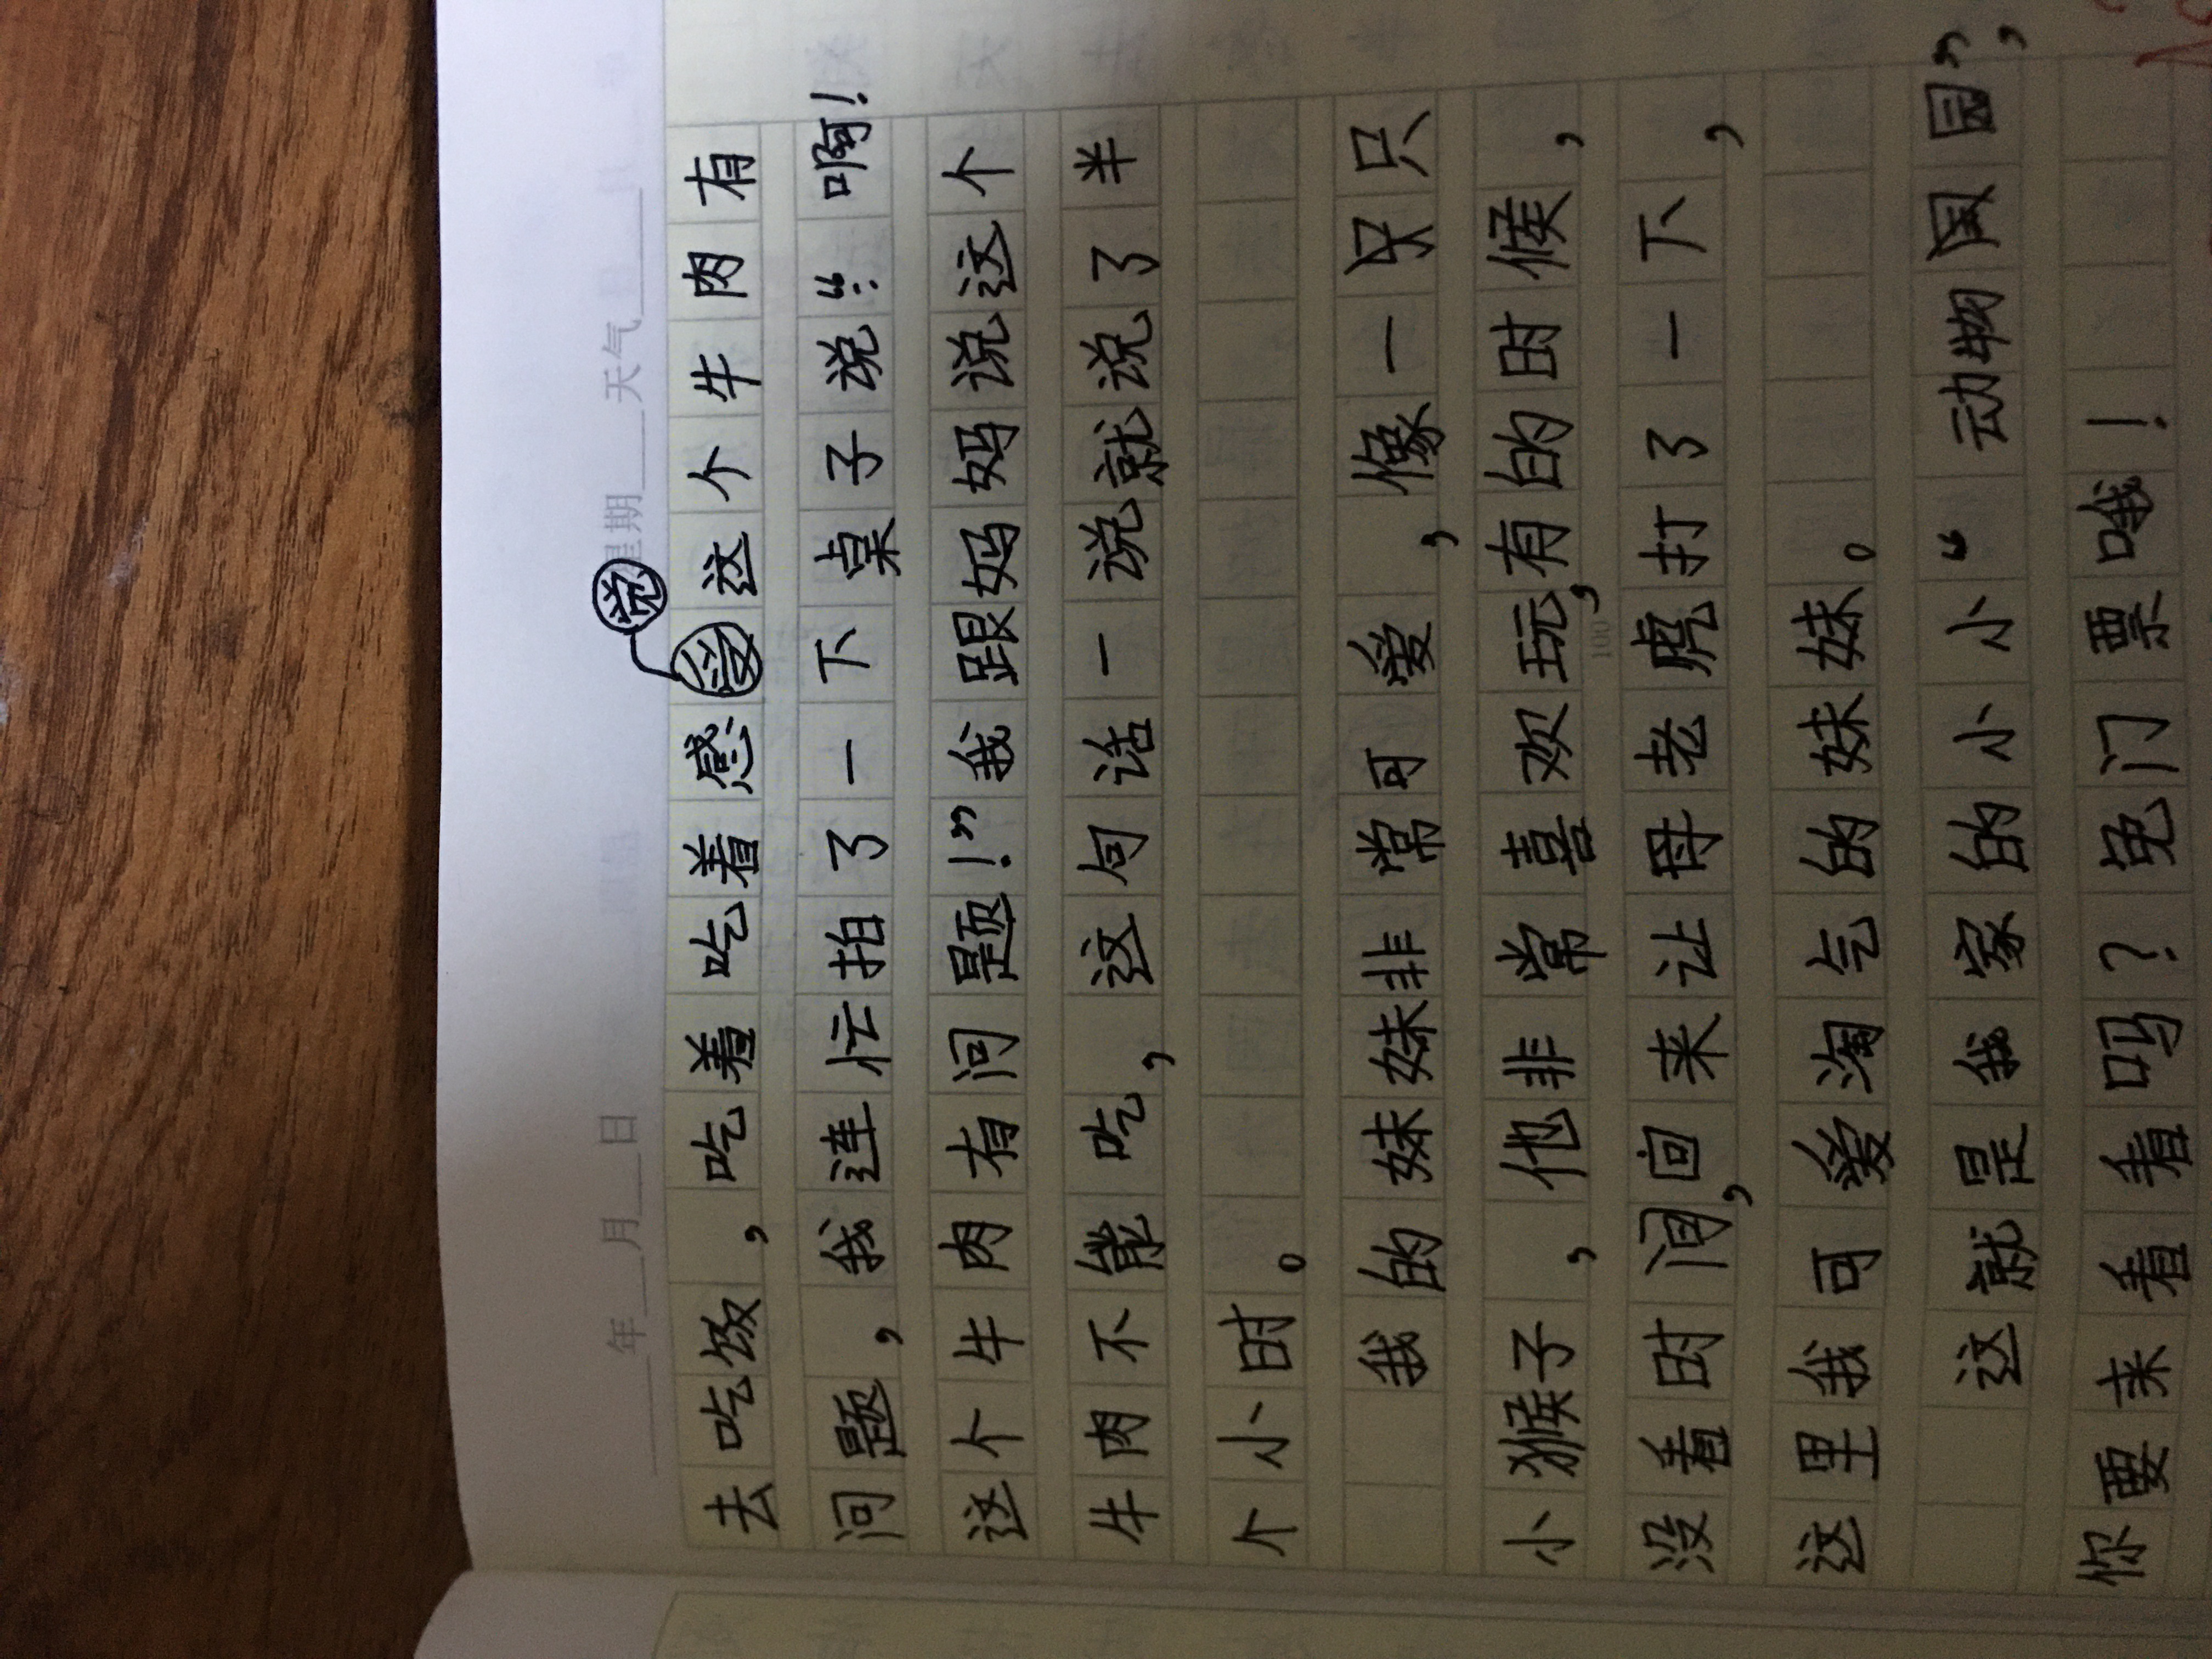 年 月 日 星期 天气
觉
去吃饭，吃着吃着感受这个牛肉有
问题，我连忙拍了一下桌子说：“啊！
这个牛肉有问题！”我跟妈妈说这个
牛肉不能吃，这句话一说就说了半
个小时。
我的妹妹非常可爱，像一只只
小猴子，他非常喜欢玩，有的时候，
100
没看时间，回来让母老虎打了一下，
这里我可爱淘气的妹妹。
这就是我家的小小“动物国园”，
你要来看看吗？免门票哦！